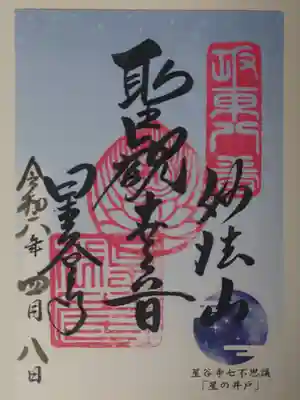 坂東八番
妙法山
聖觀世音
星谷寺
令和八年 四月 八日
星谷寺七不思議
「星の井戸」